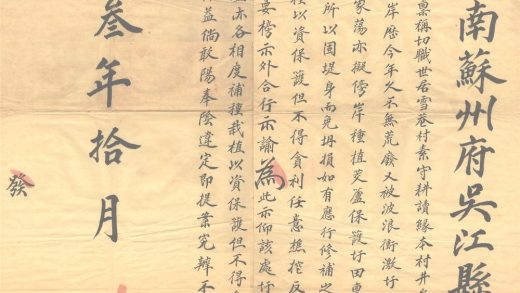 南蘇州府吳江縣
稟稱切職世居雪巷村素守耕讀緣本村井
岸歷今年久不無荒廢又被波浪衝激圩
家蕩亦擬傍岸種植茭蘆保護圩田
所以固堤身而免坍損如有應行修補之
種以資保護但不得貪利任意樵挖反
要榜示外合行示諭為此示仰該處圩
亦各相度補種栽植以資保護但不得
益倘敢陽奉陰違定即提案究辦不
叁年拾月
發